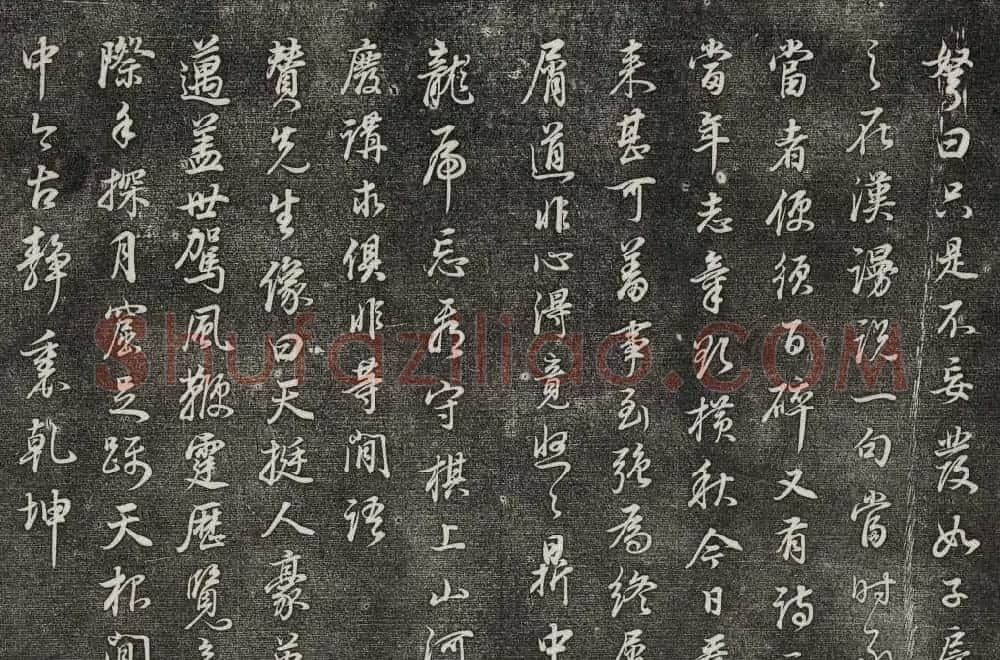 曰只是不妄發如子房
之在漢謾說一句當時承
當者便須百碎又有詩
當年志氣欲橫秋今日看
來甚可羞事到強為終屑
屑道非心得竟悠悠鼎中
龍虎忘看守棋上山河
廢講求俱非等閒語
贊先生像曰天挺人豪英
邁蓋世駕風鞭霆歷覽無
際手探月窟足躡天根閒
中今古靜裏乾坤
Shufaziliao.com